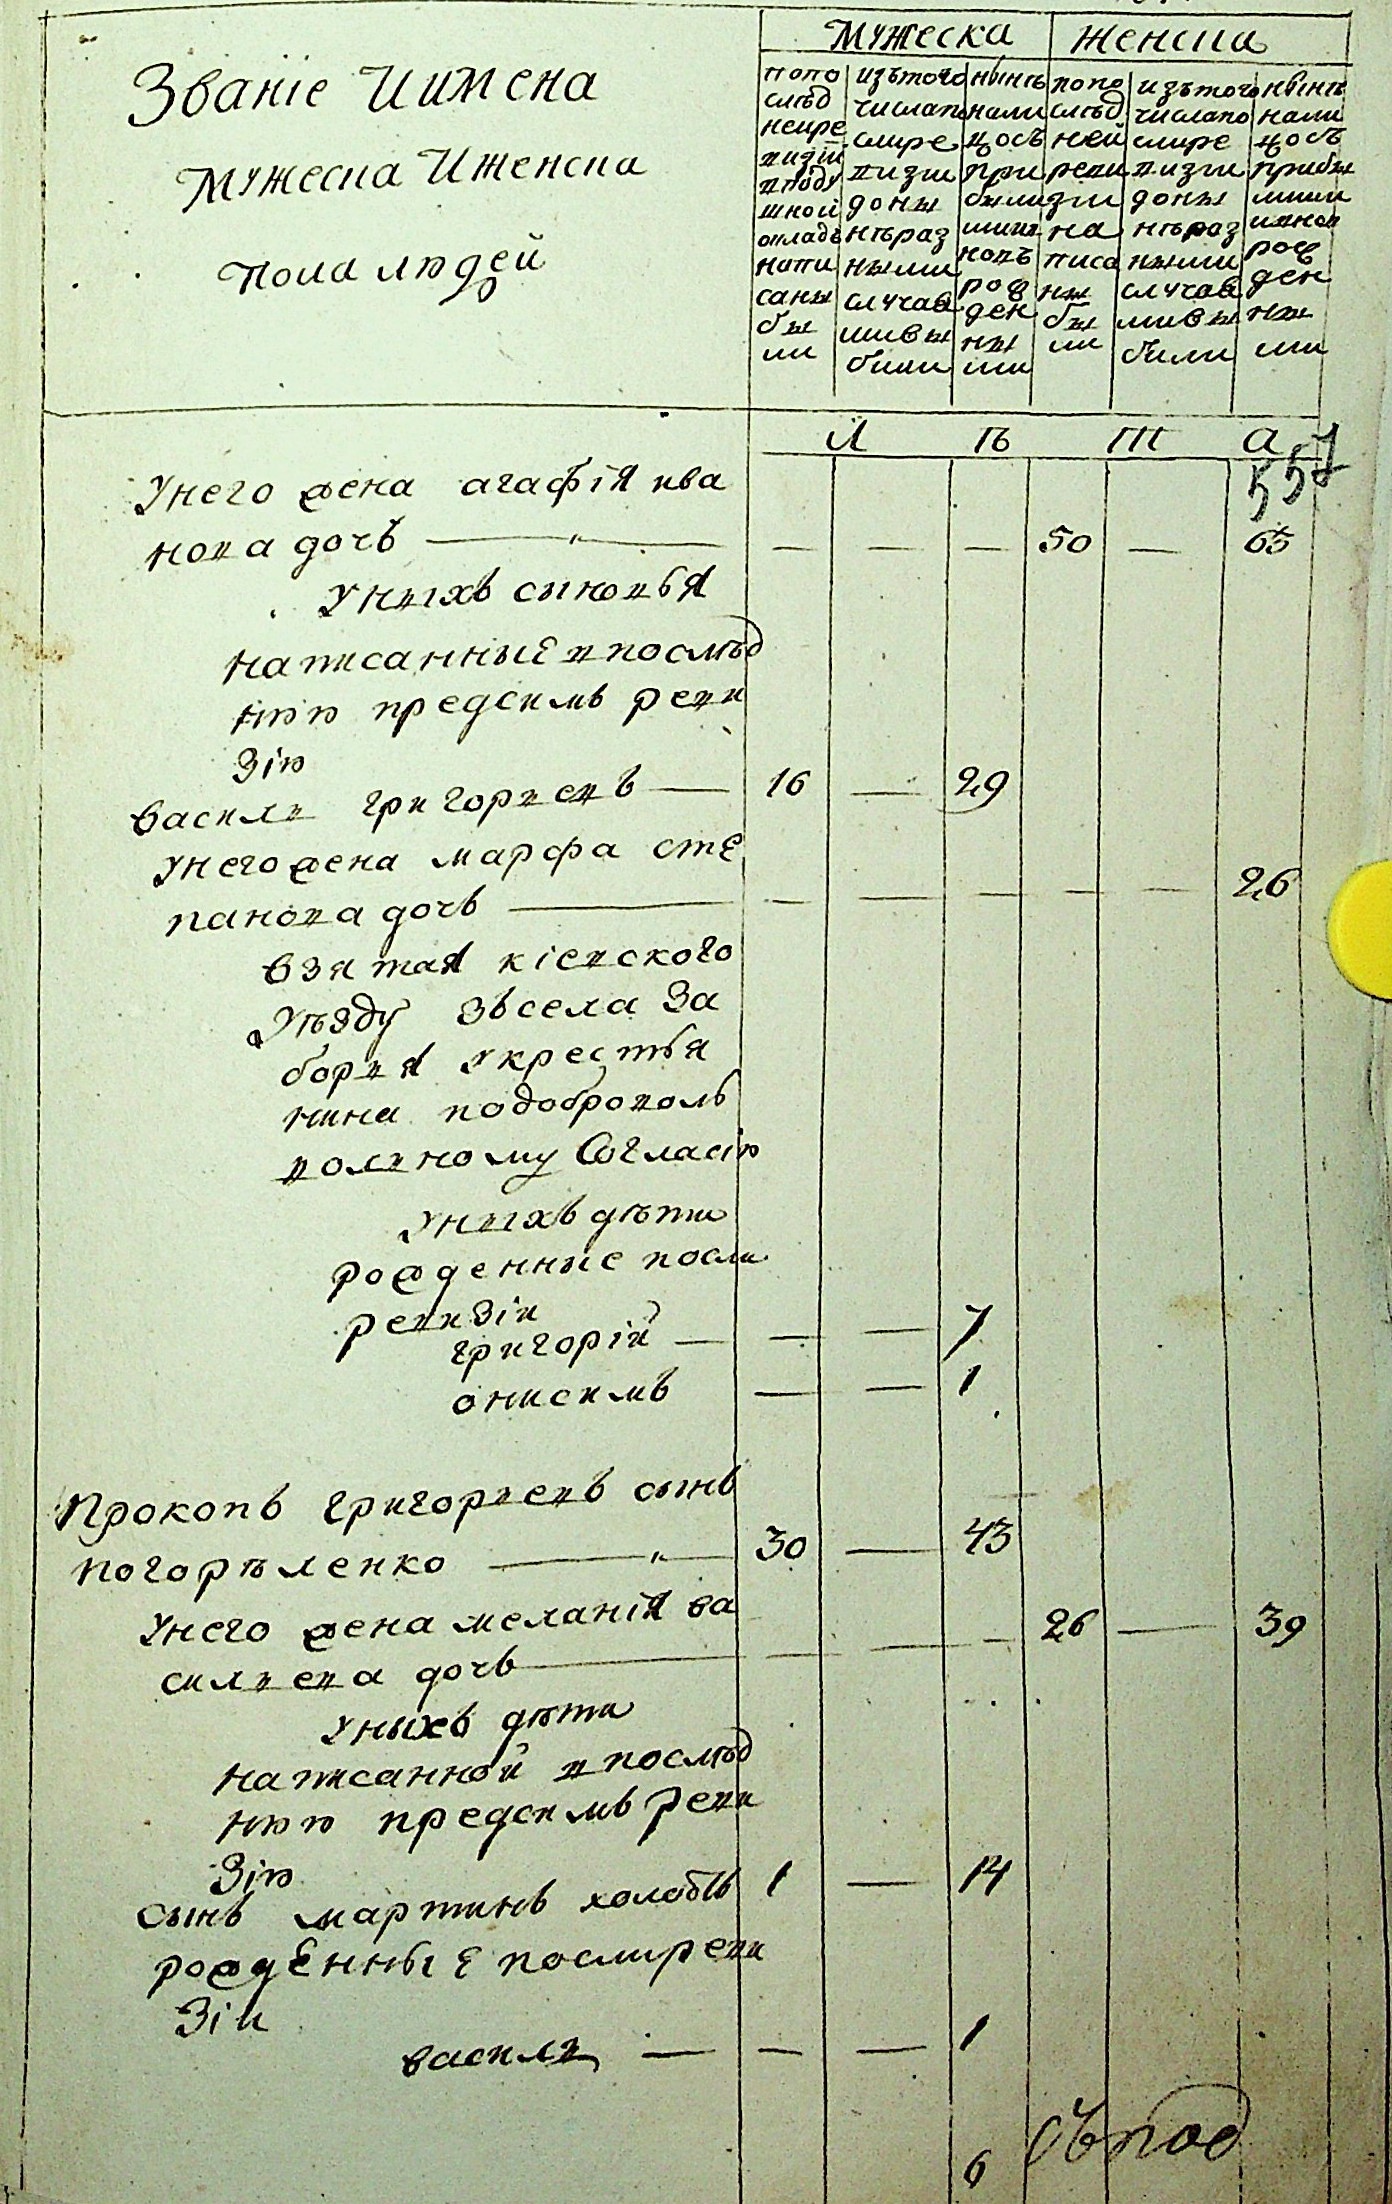 Мужеска Женска
Званіе И имена
мужеска И женска
пола людей
попо
слѣд
ней ре
визіи
вподу
шной
окладъ
напи
саны
бы
ли
изътого
числапо
слире
визіи
доны
нѣраз
ными
случаа
ми вы
были
нынѣ
нали
цось
при
былих
ишш
новъ
рож
ден
ны
ми
попо
слѣд
ней
реви
зіи
на
писа
ны
бы
ли
изътого
числапо
слире
визіи
доны
нѣраз
ными
случаа
ми вы
были
нынѣ
нали
цось
прибы
лими
ивнов
рож
ден
ны
ми
Л ѣ т а
557
Унего жена агафія ива
нова дочь — — — 50 — 65
Унихъ сыновья
написанные впослѣд
нюю предсимъ реви
зію
василь григорьевъ — 16 — 29
Унего жена марфа сте
панова дочь — — — — — — 26
взятая кіевского
уѣзду зъсела за
борья укрестья
нина подоброволь
вольному Согласію
Унихъ дѣти
рожденные посли
ревизіи
григорій — — — 7
онисимъ — — 1
Прокопъ григорьевъ сынъ
погорѣленко — 30 — 43
Унего жена меланія ва
сильева дочь — — — — 26 — 39
Уныхъ дѣти
написанной впослѣд
нюю предсимъ реви
зію
сынъ мартинъ холостъ 1 — 14
рожденные послиреви
зіи
василь — — — 1
6